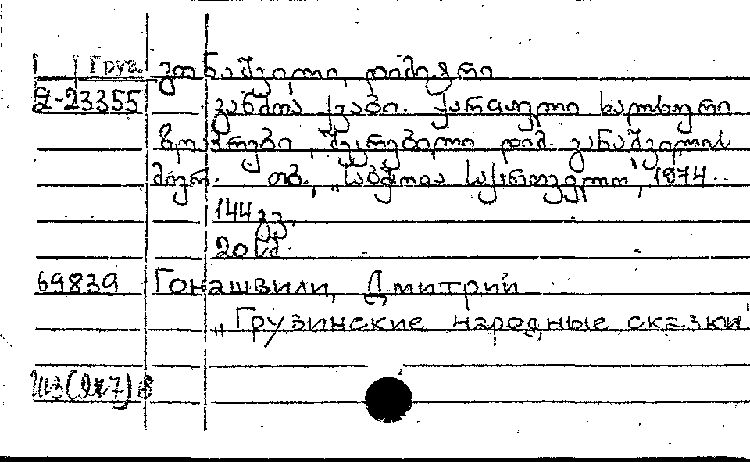 Груз. გონაშვილი, დიმიტრი
გ-23355 განძთა ქვაბი. ქართული ხალხური
ზღაპრები, შეკრებილი დიმ. გონაშვილის
მიერ. თბ., „საბჭოთა საქართველო", 1974.
144 გვ.
69839 Гонашвили, Дмитрий
„Грузинские народные сказки"